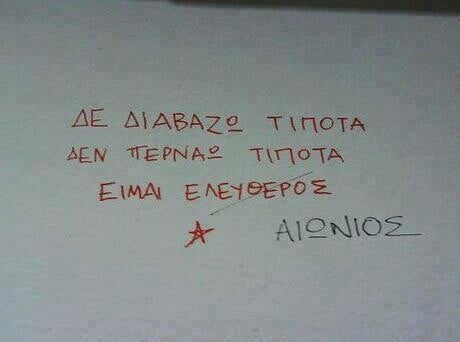 ΔΕ ΔΙΑΒΑΖΩ ΤΙΠΟΤΑ
ΔΕΝ ΠΕΡΝΑΩ ΤΙΠΟΤΑ
ΕΙΜΑΙ ΕΛΕΥΘΕΡΟΣ
ΑΙΩΝΙΟΣ